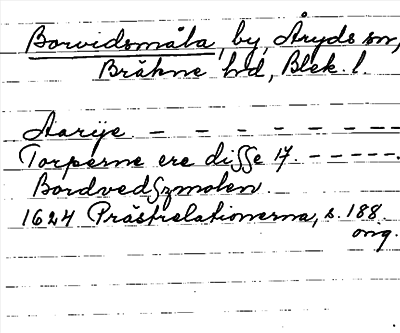 Borvidsmåla, by, Åryds sn,
Bräkne hd, Blek. l.
Aarije — — — — — — —
Torperne ere disse 17. — — — — —.
Bordvedszmolen.
1624 Prästrelationerna, s. 188.
orig.